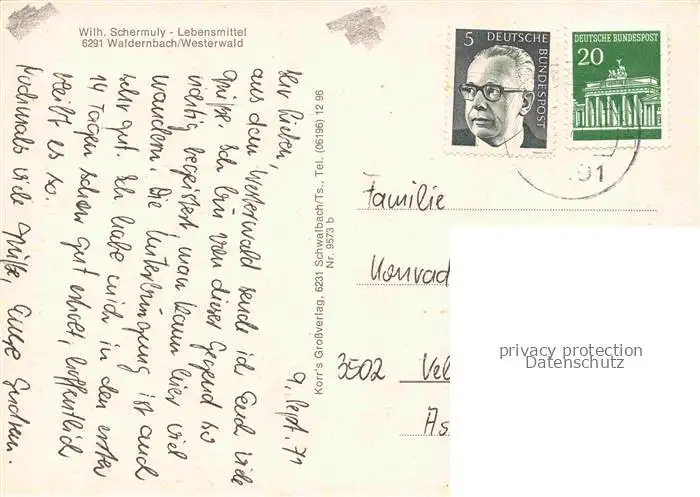 Wilh. Schermuly - Lebensmittel
6291 Waldernbach/Westerwald
9. Sept. 71
Ihr Lieben,
aus dem Westerwald sende ich Euch viele
Grüße. Ich bin von dieser Gegend so
richtig begeistert, man kann hier viel
wandern. Die Unterbringung ist auch
sehr gut. Ich habe mich in den ersten
14 Tagen schon gut erholt, hoffentlich
bleibt es so.
Nochmals viele Grüße, Eure
Korr's Großverlag, 6231 Schwalbach/Ts., Tel. (06196) 12 96
Nr. 9573 b
5 DEUTSCHE BUNDESPOST
DEUTSCHE BUNDESPOST
20
Familie
Konrad
3502 Vel
As
privacy protection
Datenschutz